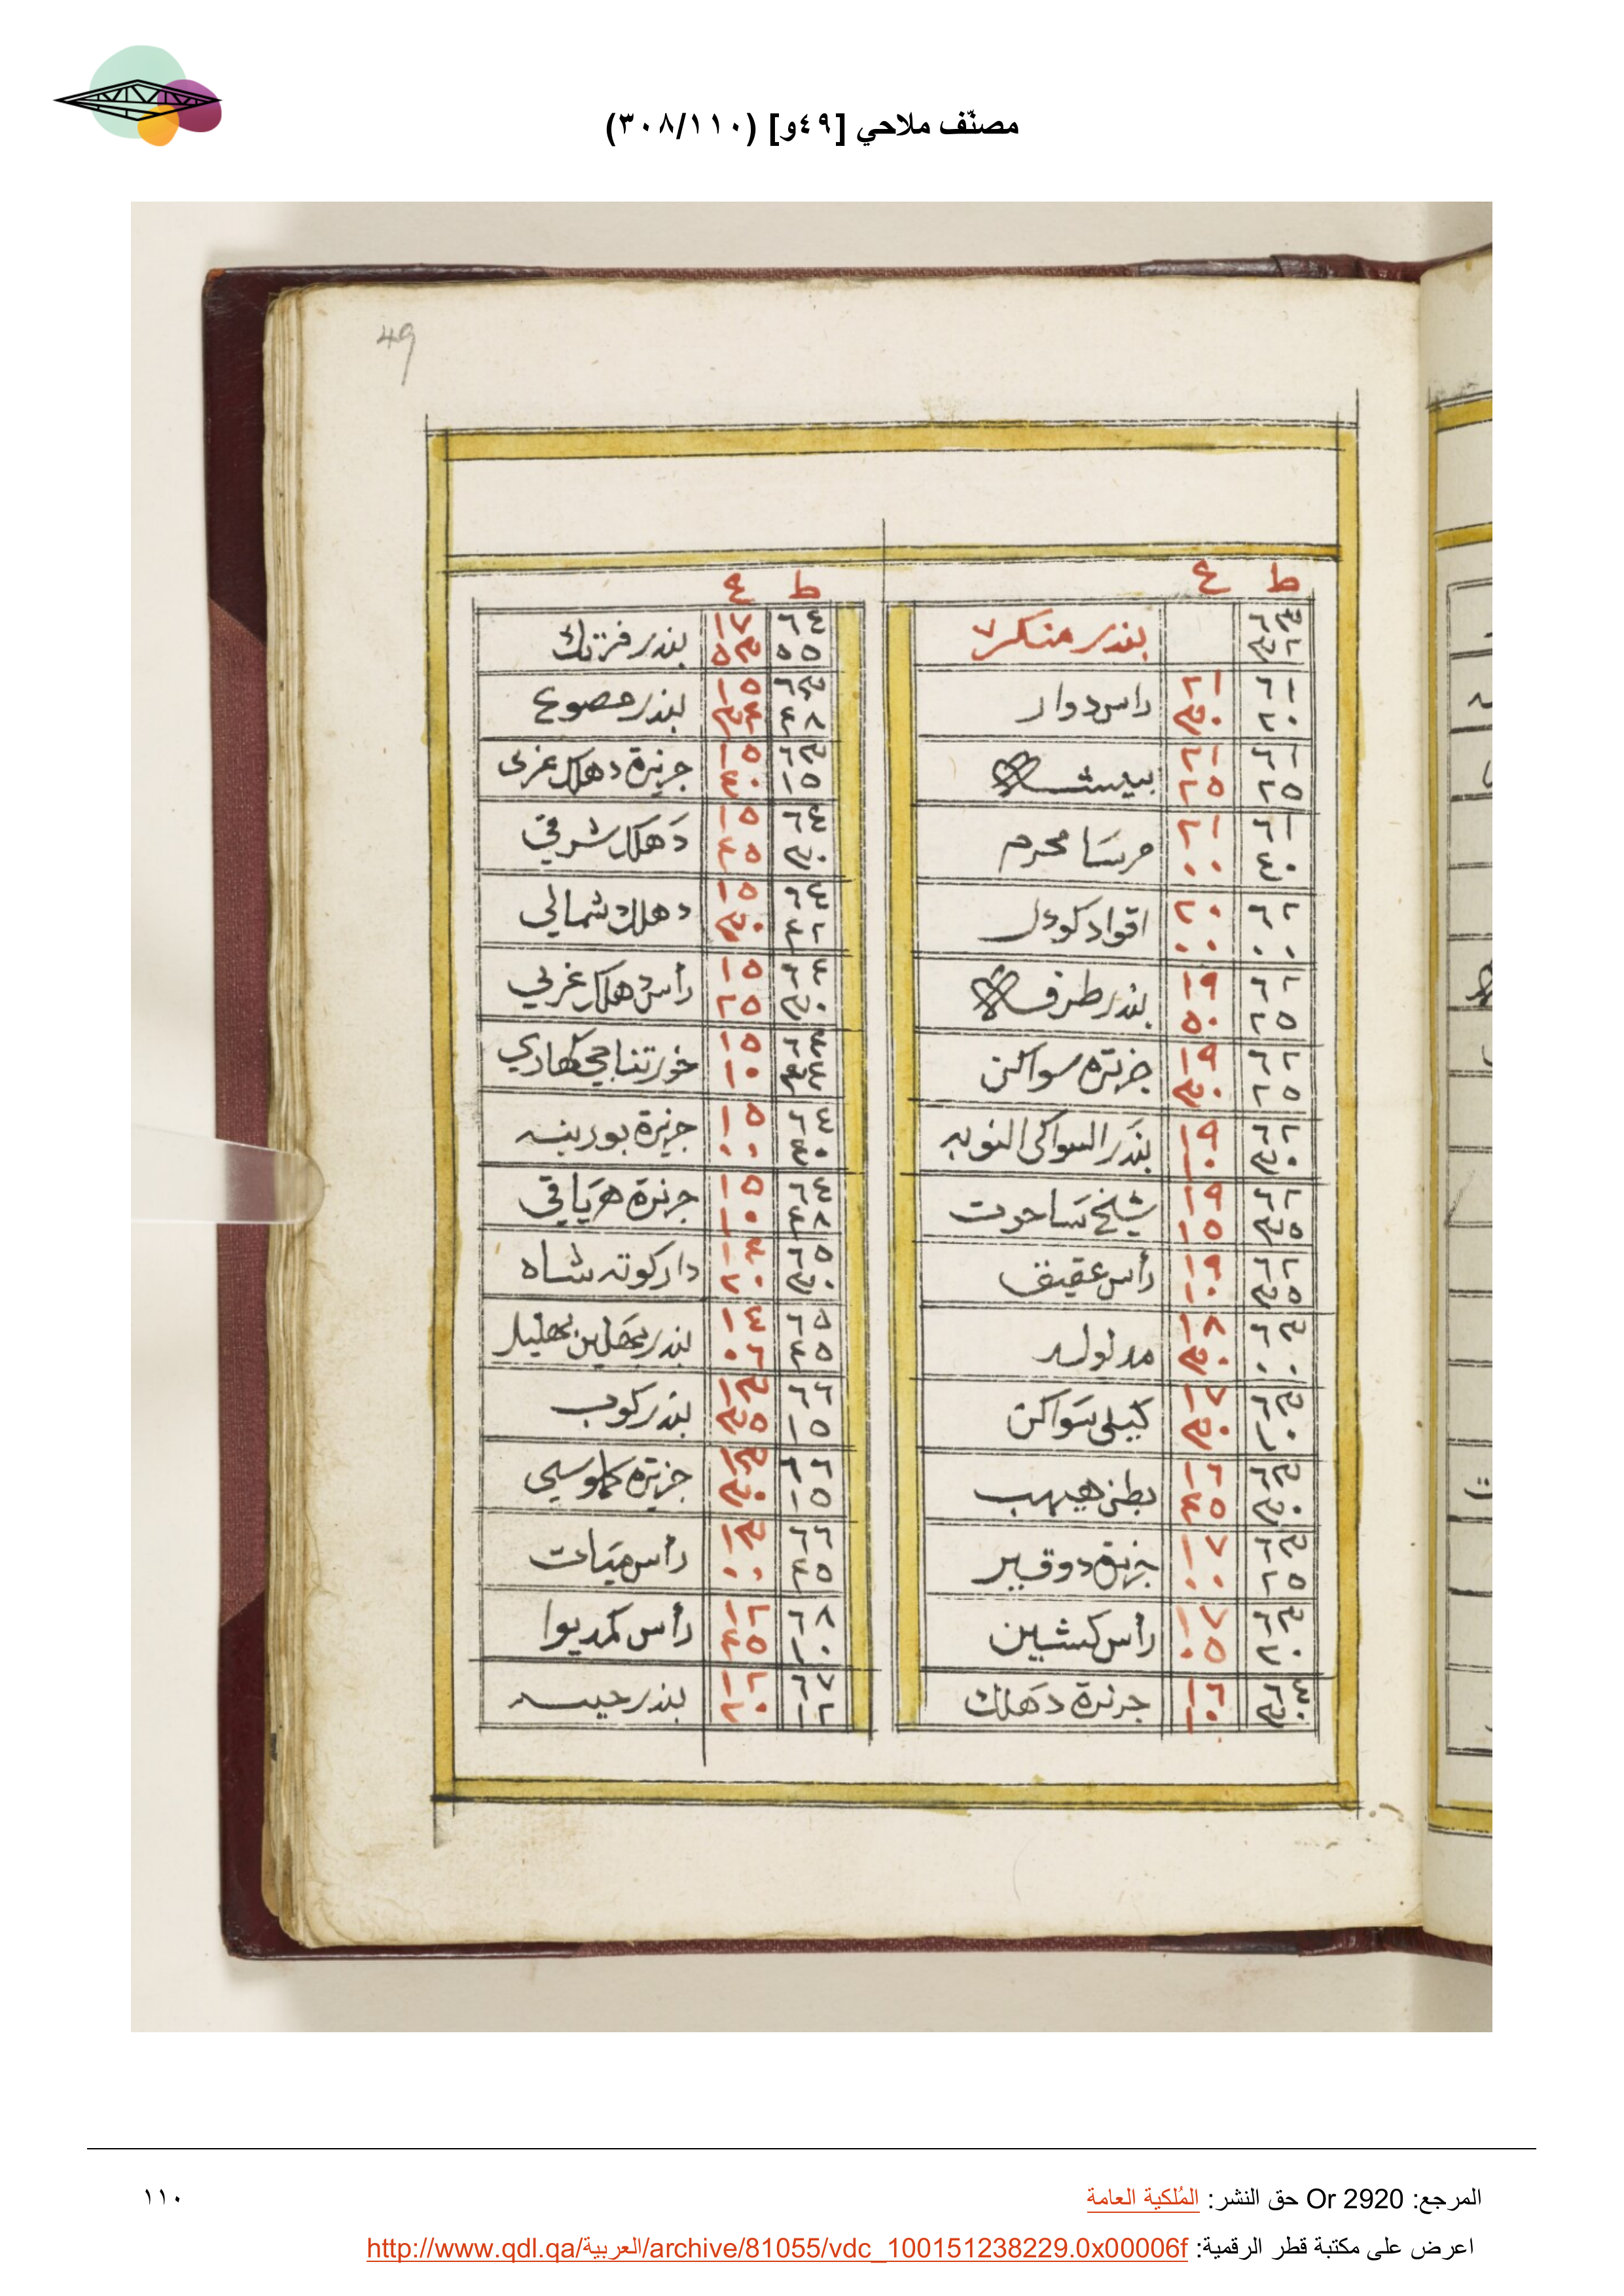 مصنّف ملاحي [٤٩و] (٣٠٨/١١٠)
49
ط ع
بندر منكر
٦١ ٢٠ ٢١ ٣٠ راس دوار
٦١ ٢٥ ٢١ ٢٥
٦١ ٤٠ ٢١ ٠٠ مرسَا محرم
٦٢ ٠٠ ٢٠ ٠٠ اقواد كودل
٦٢ ٢٥ ١٩ ٥٠ بندر طرف
٦٢ ٢٥ ١٩ ٣٠ جزيرة سواكن
٦٢ ٣٠ ١٩ ١٠ بندر السواكى النوبه
٦٢ ٣٥ ١٩ ١٥ شيخ سَاحوت
٦٢ ٣٥ ١٩ ١٠ رأس عقيق
٦٣ ٠٠ ١٨ ٣٠ مدلوله
٦٣ ١٠ ١٧ ٣٠ كيلى سَواكن
٦٣ ٣٠ ١٦ ٤٥ بطن هيهب
٦٣ ٢٥ ١٧ ٠٠ جزيرة دوقير
٦٣ ٢٠ ١٧ رأس كشين
١٦ ١٠ جزيرة دَهلك
ط ع
٦٤ ٥٥ ١٧ ٣٥ بندر فرتك
٦٣ ٤٨ ١٥ ٣٤ بندر مصوع
٦٣ ١٥ ١٥ ٤٠ جزيرة دهلك غربى
٦٤ ٣٠ ١٥ ٤٥ دَهلك شرقي
٤٢ ١٥ ٣٠ دهلك شمالي
٦٤ ٣٠ ١٥ ٢٥ رأس دهلك غربي
١٥ ١٠ خور
٦٤ ٤٠ ١٥ ٠٠ جزيرة بورينه
٦٤ ٤٨ ١٥ ١٠ جزيرة هرَياقي
٦٥ ٣٠ ١٤ ٢٠ دار كوته شاه
٦٥ ٤٥ ١٤ ٠٦ بندر
٦٦ ١٥ ١٣ ٣٥ بندر كوب
٦٦ ١٥ ١٣ ٣٠ جزيرة
٦٦ ٤٥ ١٣ ٠٠ رأس ميَات
٦٨ ١٠ ١٢ ٤٥ رأس كمديوا
٦٧ ١٢ ١٢ ٢٠ بندر حيسه
المرجع: Or 2920 حق النشر: المُلكية العامة
١١٠
اعرض على مكتبة قطر الرقمية: http://www.qdl.qa/العربية/archive/81055/vdc_100151238229.0x00006f